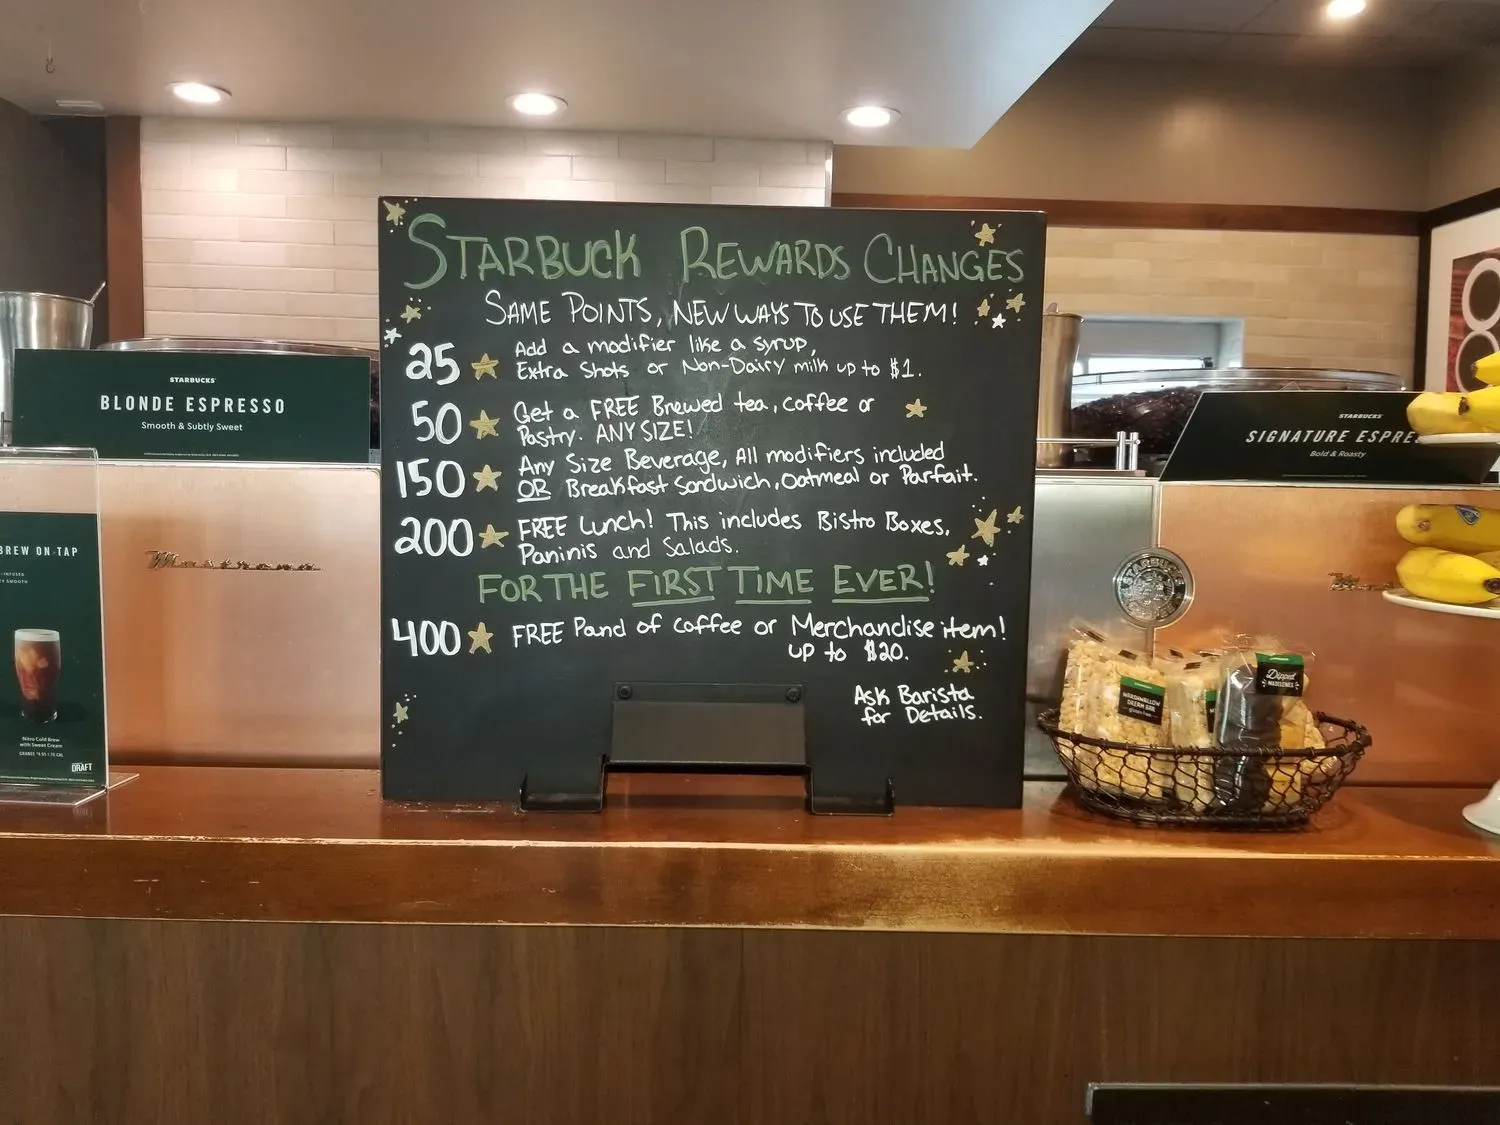 STARBUCK REWARDS CHANGES
SAME POINTS, NEW WAYS TO USE THEM!
25 Add a modifier like a syrup,
Extra Shots or Non-Dairy milk up to $1.
50 Get a FREE Brewed tea, coffee or
Pastry. ANY SIZE!
150 Any Size Beverage, All modifiers included
OR Breakfast Sandwich, Oatmeal or Parfait.
200 FREE Lunch! This includes Bistro Boxes,
Paninis and Salads.
FOR THE FIRST TIME EVER!
400 FREE Pound of coffee or Merchandise item!
up to $20.
Ask Barista
for Details.
STARBUCKS
BLONDE ESPRESSO
Smooth & Subtly Sweet
BREW ON TAP
Nitro Cold Brew
with Sweet Cream
DRAFT
Mastrena
STARBUCKS
SIGNATURE ESPRE
Bold & Roasty
STARBUCKS
MARSHMALLOW
DREAM BAR
gluten free
Dipped
MADELEINES